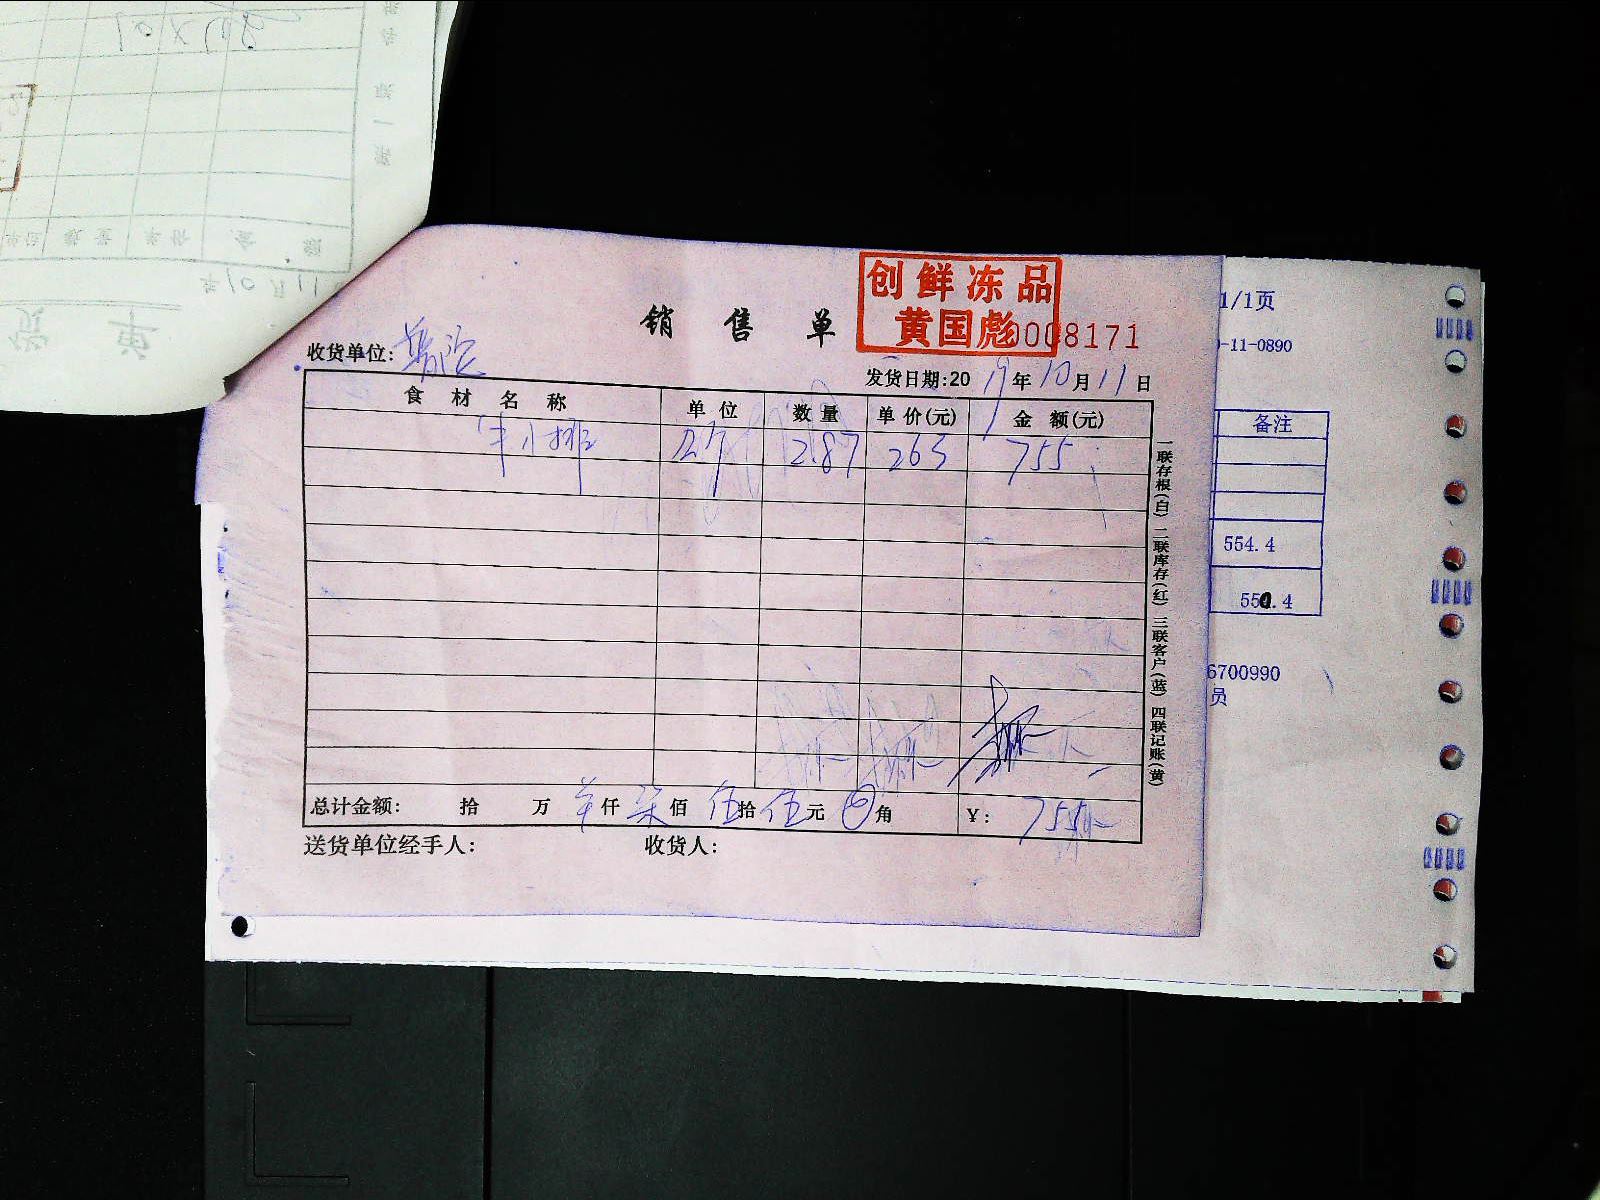 创鲜冻品
黄国彪
销售单
0008171
收货单位:
发货日期:2019年10月11日
食材名称 单位 数量 单价(元) 金额(元)
牛小排 公斤 2.87 263 755
总计金额: 拾 万 仟 柒佰 伍拾 伍元 角 ¥: 755
送货单位经手人: 收货人:
一联存根(白) 二联库存(红) 三联客户(蓝) 四联记账(黄)
1/1页
-11-0890
备注
554.4
550.4
6700990
员
单位 数量 单价 金额
年10月11
货单